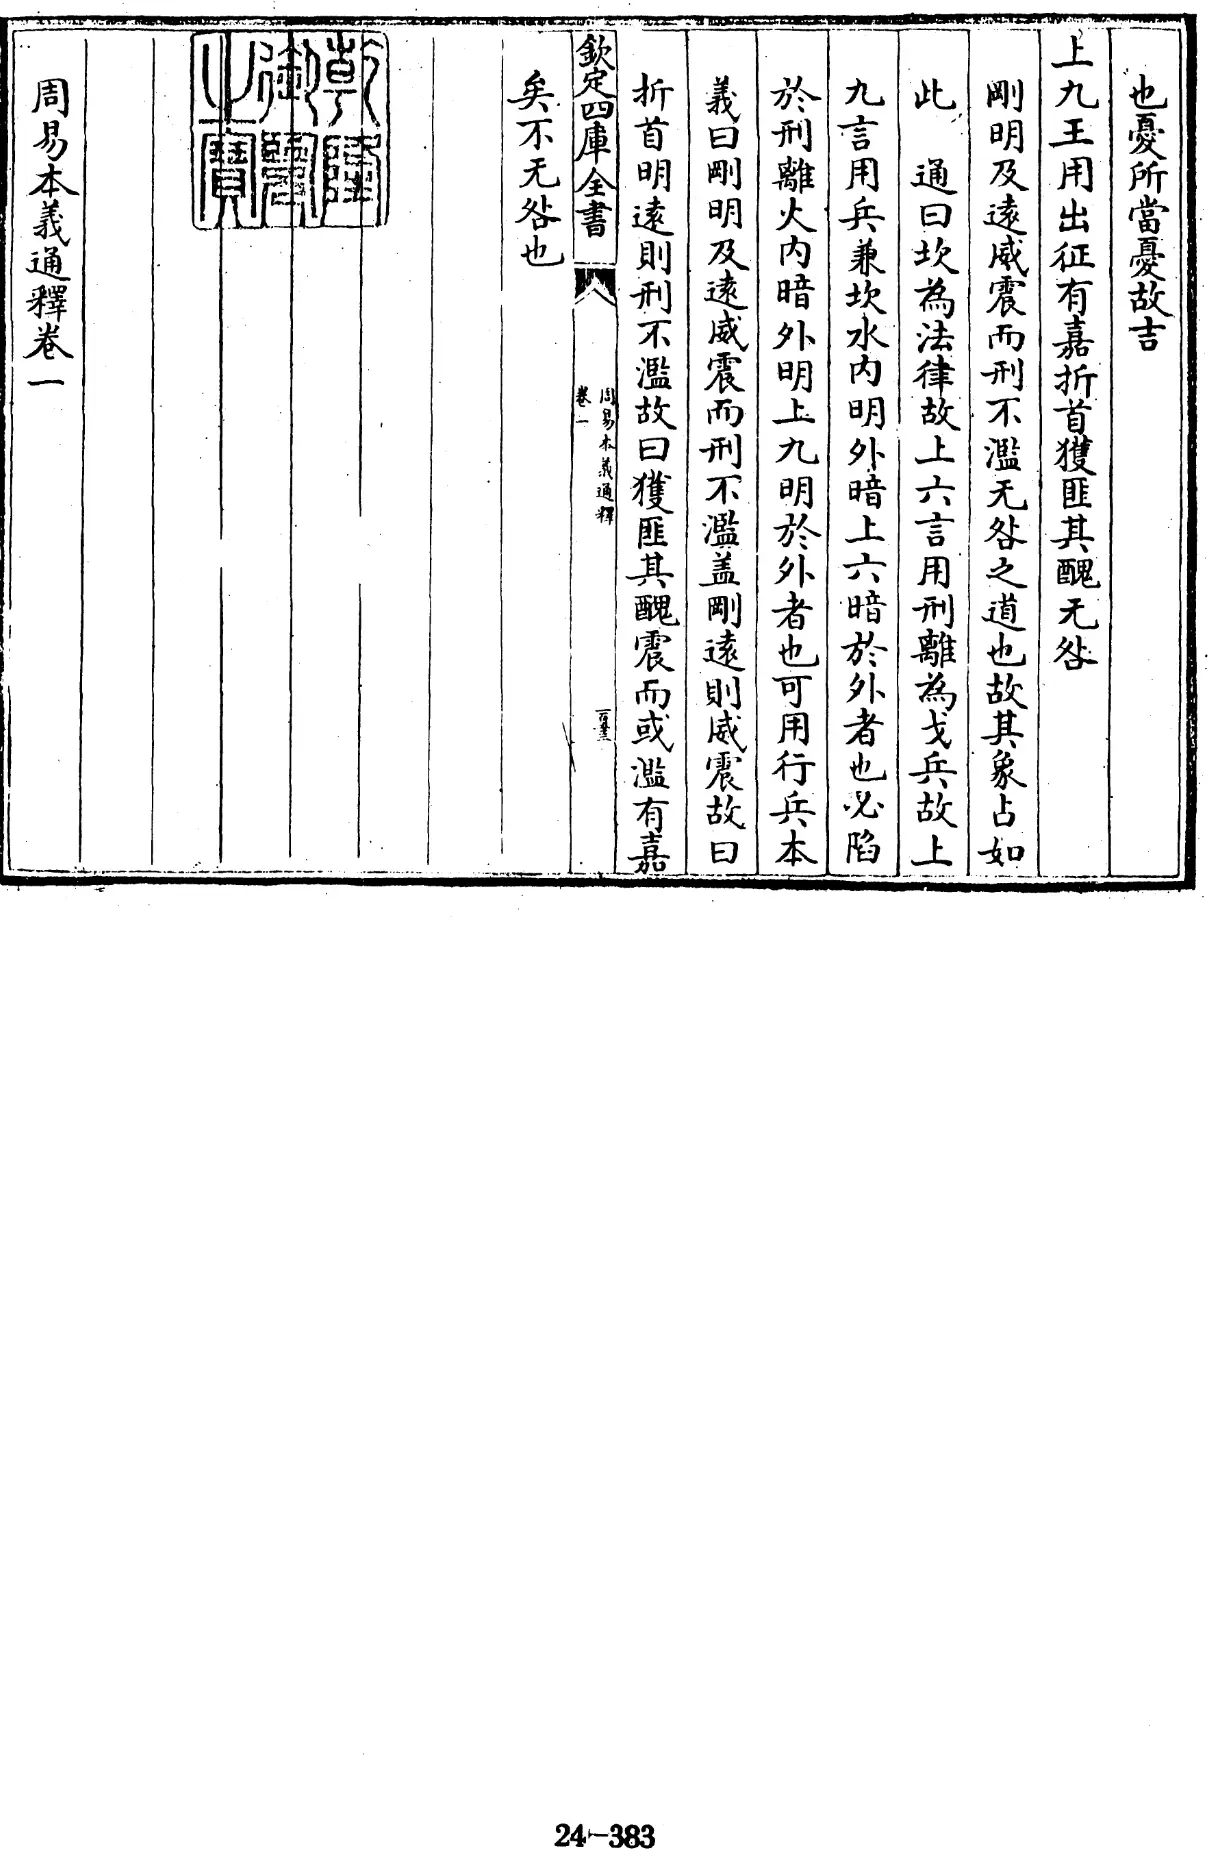 也憂所當憂故吉
上九王用出征有嘉折首獲匪其醜无咎
剛明及逺威震而刑不濫无咎之道也故其象占如
此　通曰坎為法律故上六言用刑離為戈兵故上
九言用兵兼坎水内明外暗上六暗於外者也必陷
於刑離火内暗外明上九明於外者也可用行兵本
義曰剛明及逺威震而刑不濫盖剛逺則威震故曰
折首明逺則刑不濫故曰獲匪其醜震而或濫有嘉
欽定四庫全書
周易本義通釋
卷一
矣不无咎也
乾隆御覽之寶
周易本義通釋卷一
24-383